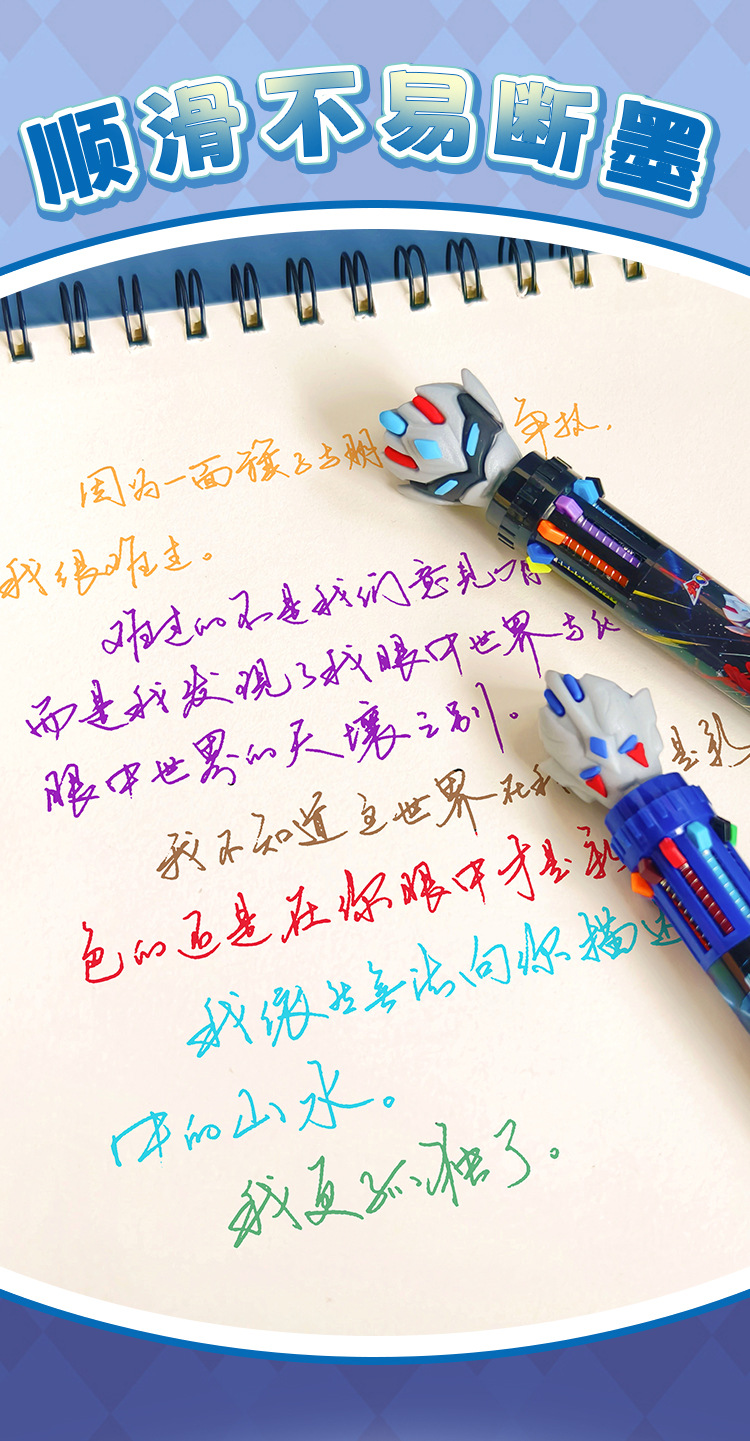 顺滑不易断墨
因为一面镜子与朋 争执,
我很难过。
难过的不是我们意见
而是我发现了我眼中世界与
眼中世界的天壤之别。
我不知道这世界在我 是彩
色的还是在你眼中才是彩
我依然无法向你描述
中的山水。
我更孤独了。